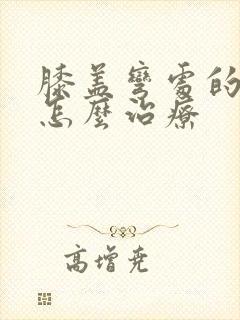 膝盖彎處的
怎麼治療
高增堯